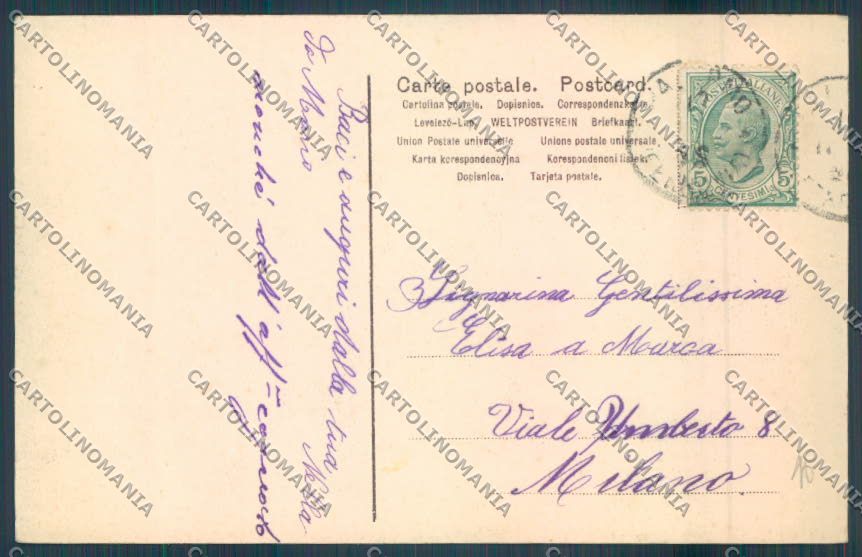 Carte postale. Postcard.
Cartolina postale. Dopisnica. Correspondenzkarte.
Levelező-Lap. WELTPOSTVEREIN Briefkaart.
Union Postale universelle Unione postale universale.
Karta korespondencyjna Korespondencni listek.
Dopisnica. Tarjeta postale.
POSTE ITALIANE
5 CENTESIMI 5
Signorina Gentilissima
Elisa a Marca
Viale Umberto 8
Milano.
Baci e auguri dalla tua
Nella
nonchè dall' aff
CARTOLINOMANIA